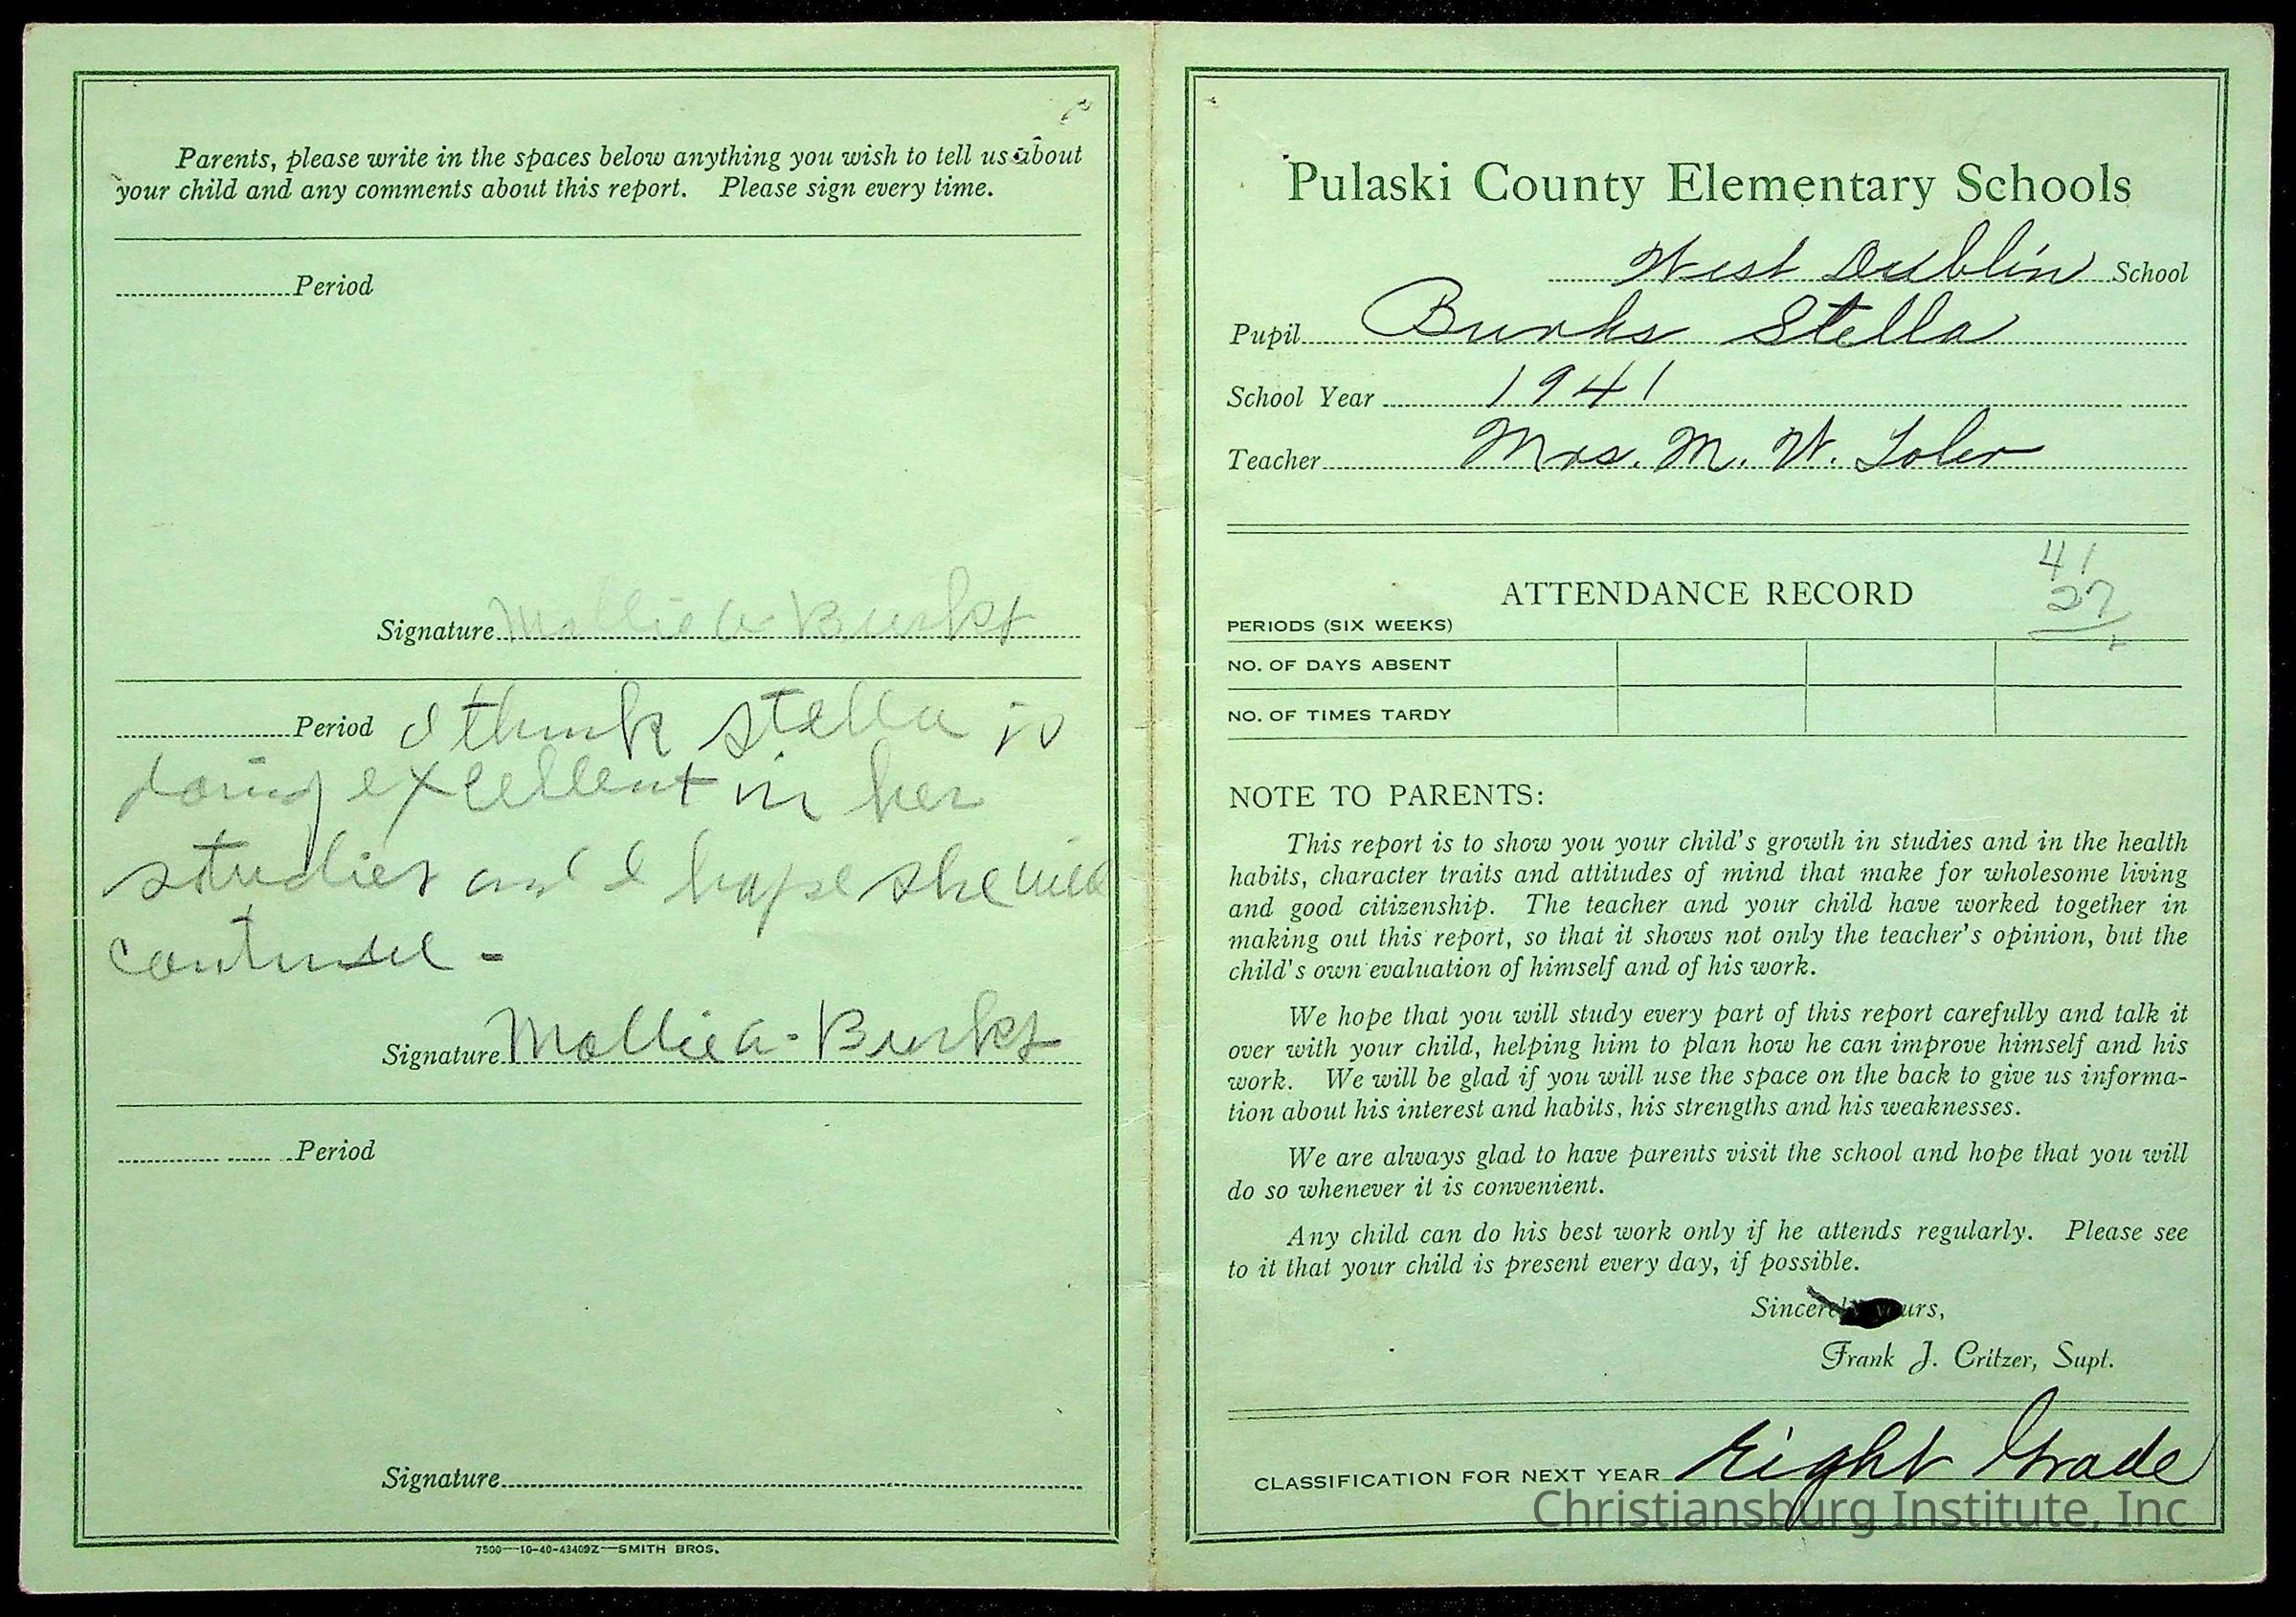 Parents, please write in the spaces below anything you wish to tell us about
your child and any comments about this report. Please sign every time.
Period
Signature Mollie a. Burks
Period I think stella is
doing excellent in her
studies and I hope she will
continue -
Signature Mollie a. Burks
Period
Signature
7500—10-40-43409Z—SMITH BROS.
Pulaski County Elementary Schools
West Dublin School
Pupil Burks Stella
School Year 1941
Teacher Mrs. M. W.
41
ATTENDANCE RECORD 27
PERIODS (SIX WEEKS)
NO. OF DAYS ABSENT
NO. OF TIMES TARDY
NOTE TO PARENTS:
This report is to show you your child's growth in studies and in the health
habits, character traits and attitudes of mind that make for wholesome living
and good citizenship. The teacher and your child have worked together in
making out this report, so that it shows not only the teacher's opinion, but the
child's own evaluation of himself and of his work.
We hope that you will study every part of this report carefully and talk it
over with your child, helping him to plan how he can improve himself and his
work. We will be glad if you will use the space on the back to give us informa-
tion about his interest and habits, his strengths and his weaknesses.
We are always glad to have parents visit the school and hope that you will
do so whenever it is convenient.
Any child can do his best work only if he attends regularly. Please see
to it that your child is present every day, if possible.
Sincerely yours,
Frank J. Critzer, Supt.
CLASSIFICATION FOR NEXT YEAR Eight Grade
Christiansburg Institute, Inc